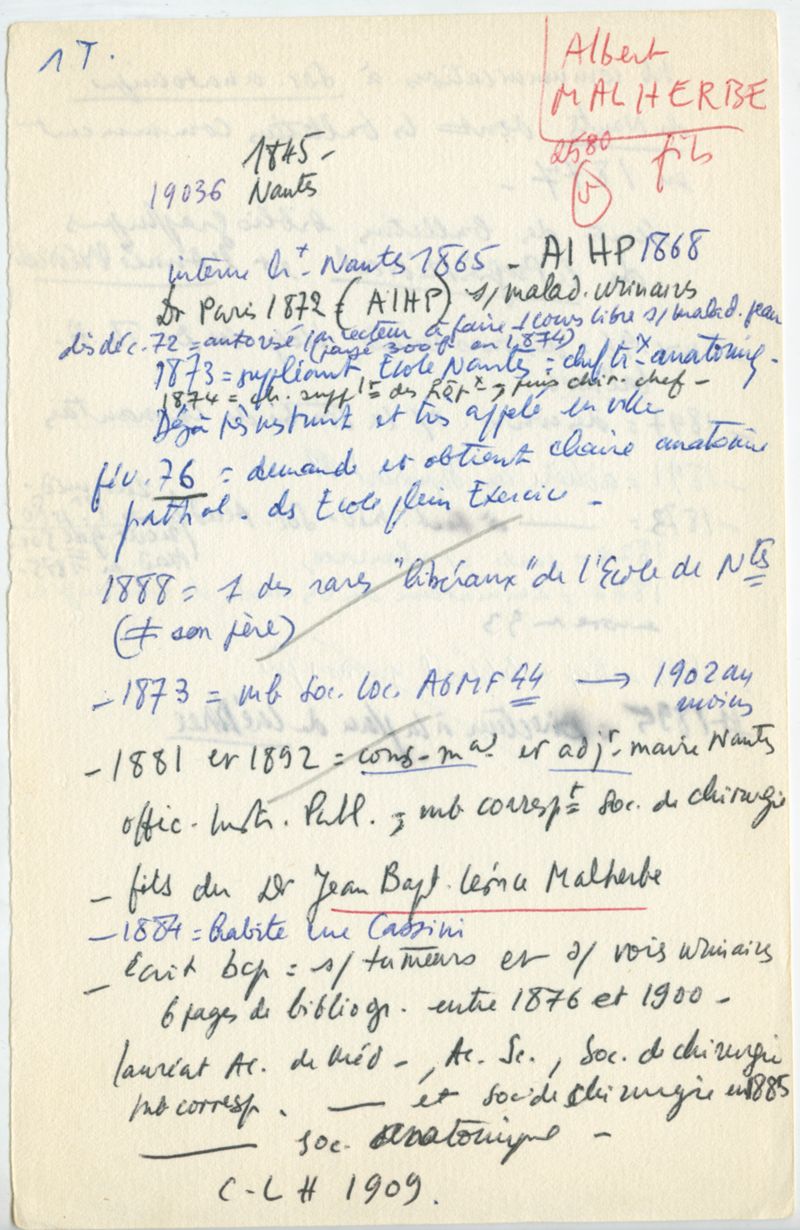 1T.
Albert
MALHERBE
fils
2580
5
1845 -
19036 Nantes
interne hx - Nantes 1865 - AIHP 1868
Dr Paris 1872 = (AIHP) s/ malad. urinaires
dès déc. 72 = autorisé par recteur à faire 1 cours libre s/ malad. peau
(payé 300 f en 1874)
1873 = suppléant Ecole Nantes = chef trx anatomiq -
1874 = ch. supplt des hôpx, puis chir. chef -
Déjà très instruit et très appelé en ville
fév. 76 = demande et obtient chaire anatomie
pathol. ds Ecole plein Exercice -
1888 = 1 des rares "libéraux" de l'Ecole de Nts
(≠ son père)
- 1873 = mb Soc. loc. AGMF 44 → 1902 au
moins
- 1881 et 1892 = cons. mal et adjt - maire Nantes
offic. Instr. Publ. ; mb correspt Soc. de chirurgie
- fils du Dr Jean Bapt. Léonce Malherbe
- 1884 = habite rue Cassini
- écrit bcp = s/ tumeurs et s/ voies urinaires
6 pages de bibliogr. entre 1876 et 1900 -
lauréat Ac. de Méd -, Ac. Sc., Soc. de chirurgie
mb corresp. — et soc. de chirurgie en 1885
— soc. anatomique -
C - L H 1909.